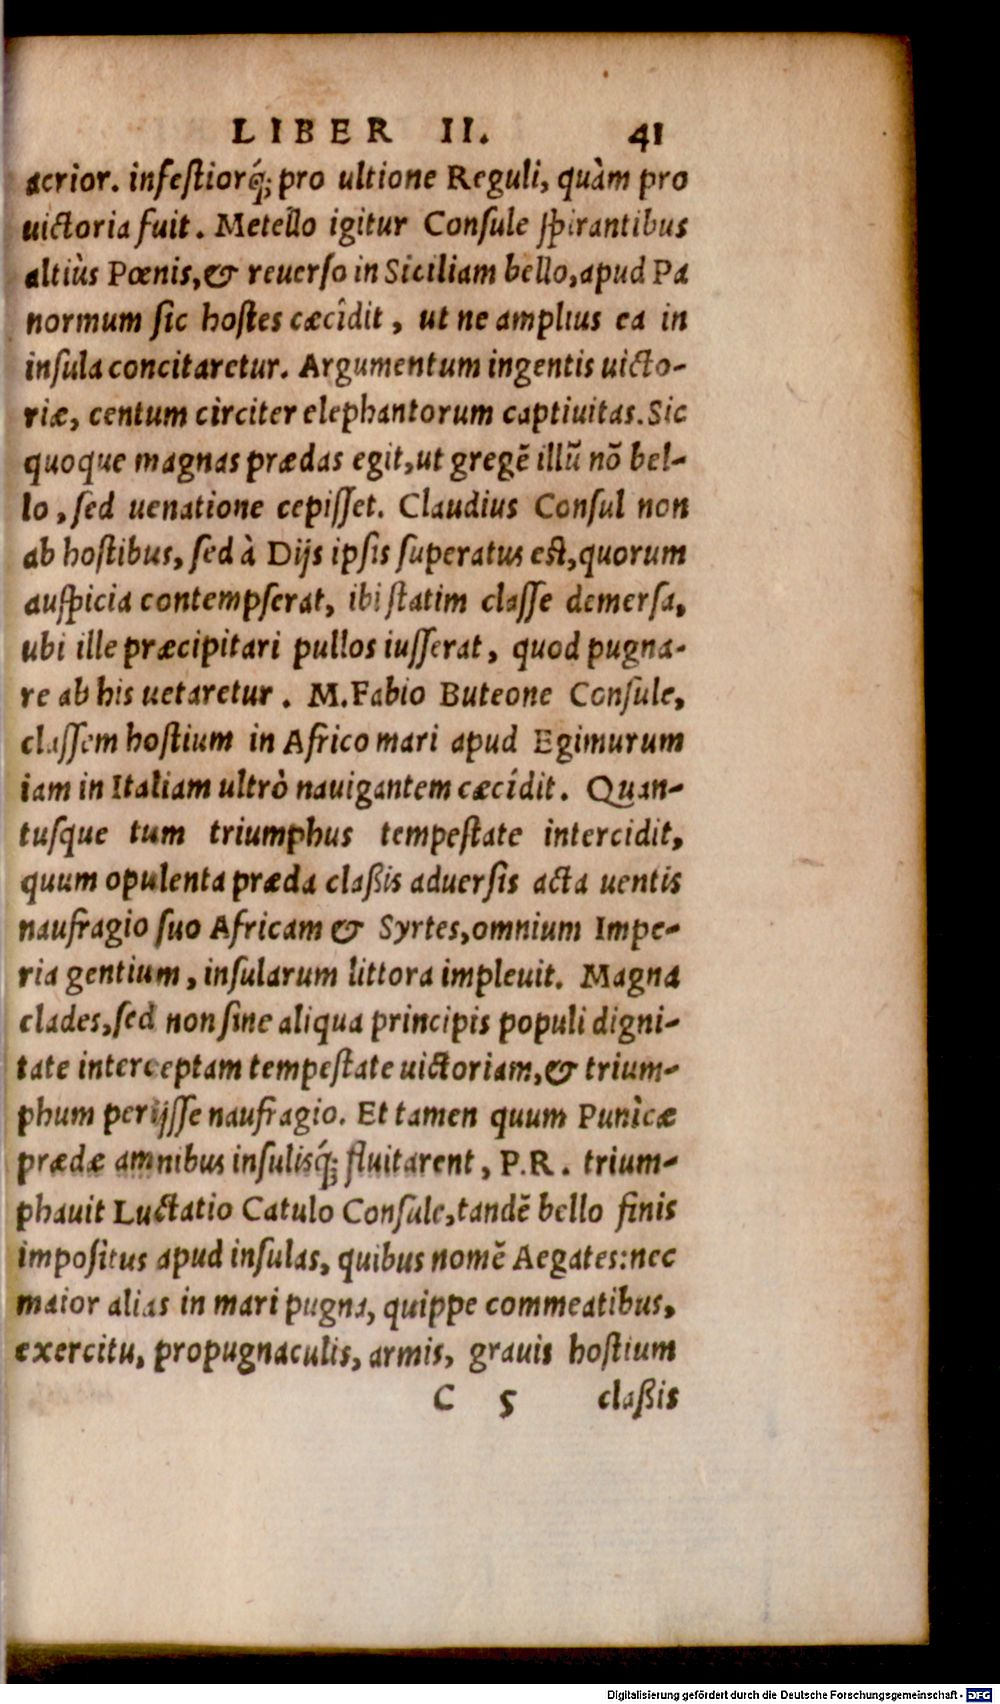 LIBER II. 41
acrior. infeſtiorq́; pro ultione Reguli, quàm pro
uictoria fuit. Metello igitur Conſule ſpirantibus
altiùs Pœnis, & reuerſo in Siciliam bello, apud Pa
normum ſic hoſtes cæcîdit, ut ne amplius ea in
inſula concitaretur. Argumentum ingentis uicto-
riæ, centum circiter elephantorum captiuitas. Sic
quoque magnas prædas egit, ut gregẽ illũ nõ bel-
lo, ſed uenatione cepiſſet. Claudius Conſul non
ab hoſtibus, ſed à Dijs ipſis ſuperatus eſt, quorum
auſpicia contempſerat, ibi ſtatim claſſe demerſa,
ubi ille præcipitari pullos iuſſerat, quod pugna-
re ab his uetaretur. M. Fabio Buteone Conſule,
claſſem hoſtium in Africo mari apud Egimurum
iam in Italiam ultrò nauigantem cæcîdit. Quan-
tuſque tum triumphus tempeſtate intercidit,
quum opulenta præda claßis aduerſis acta uentis
naufragio ſuo Africam & Syrtes, omnium Impe-
ria gentium, inſularum littora impleuit. Magna
clades, ſed non ſine aliqua principis populi digni-
tate interceptam tempeſtate uictoriam, & trium-
phum perijſſe naufragio. Et tamen quum Punìcæ
prædæ amnibus inſulisq́; fluitarent, P.R. trium-
phauit Luctatio Catulo Conſule, tandẽ bello finis
impoſitus apud inſulas, quibus nomẽ Aegates: nec
maior alias in mari pugna, quippe commeatibus,
exercitu, propugnaculis, armis, grauis hoſtium
C 5 claßis
Digitalisierung gefördert durch die Deutsche Forschungsgemeinschaft - DFG